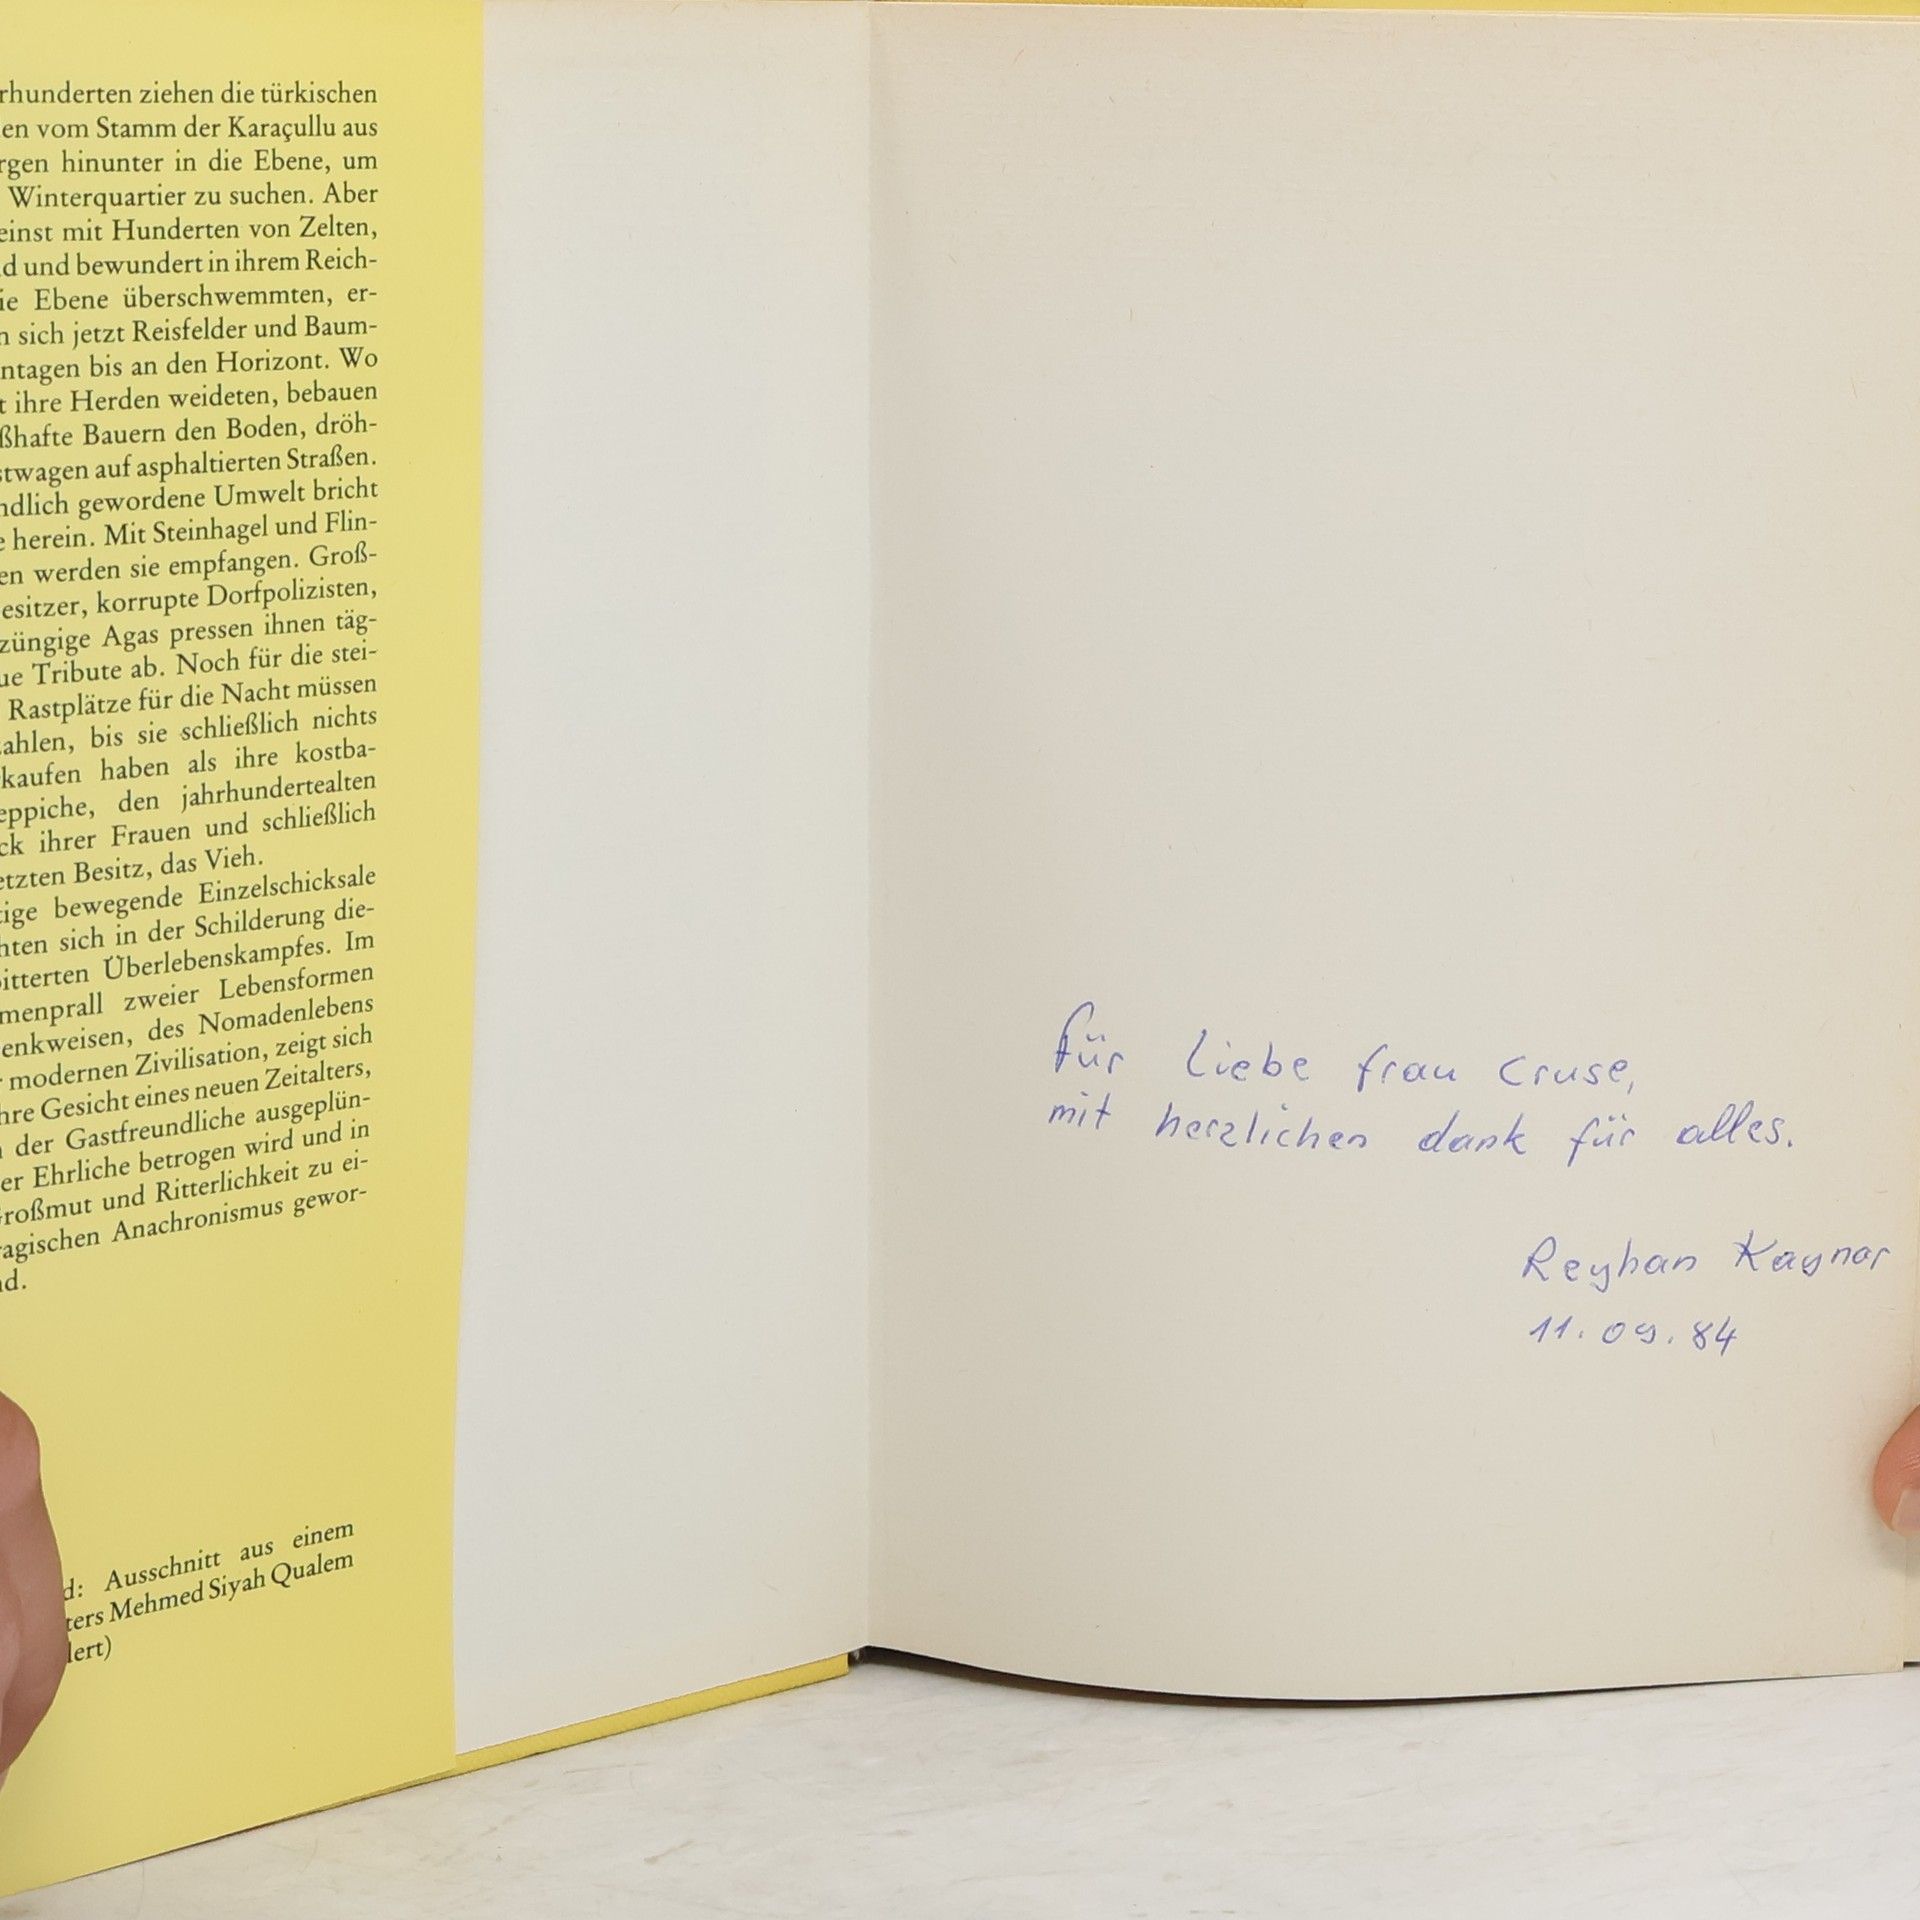 rhunderten ziehen die türkischen
en vom Stamm der Karaçullu aus
rgen hinunter in die Ebene, um
Winterquartier zu suchen. Aber
einst mit Hunderten von Zelten,
d und bewundert in ihrem Reich-
ie Ebene überschwemmten, er-
n sich jetzt Reisfelder und Baum-
ntagen bis an den Horizont. Wo
t ihre Herden weideten, bebauen
ßhafte Bauern den Boden, dröh-
stwagen auf asphaltierten Straßen.
ndlich gewordene Umwelt bricht
e herein. Mit Steinhagel und Flin-
en werden sie empfangen. Groß-
esitzer, korrupte Dorfpolizisten,
züngige Agas pressen ihnen täg-
ue Tribute ab. Noch für die stei-
Rastplätze für die Nacht müssen
ahlen, bis sie schließlich nichts
kaufen haben als ihre kostba-
eppiche, den jahrhundertealten
ck ihrer Frauen und schließlich
etzten Besitz, das Vieh.
tige bewegende Einzelschicksale
hten sich in der Schilderung die-
bitterten Überlebenskampfes. Im
menprall zweier Lebensformen
enkweisen, des Nomadenlebens
r modernen Zivilisation, zeigt sich
hre Gesicht eines neuen Zeitalters,
n der Gastfreundliche ausgeplün-
er Ehrliche betrogen wird und in
Großmut und Ritterlichkeit zu ei-
ragischen Anachronismus gewor-
nd.
d: Ausschnitt aus einem
ters Mehmed Siyah Qualem
lert)
Für Liebe frau Cruse,
mit herzlichen dank für alles.
Reyhan Kaynar
11.09.84